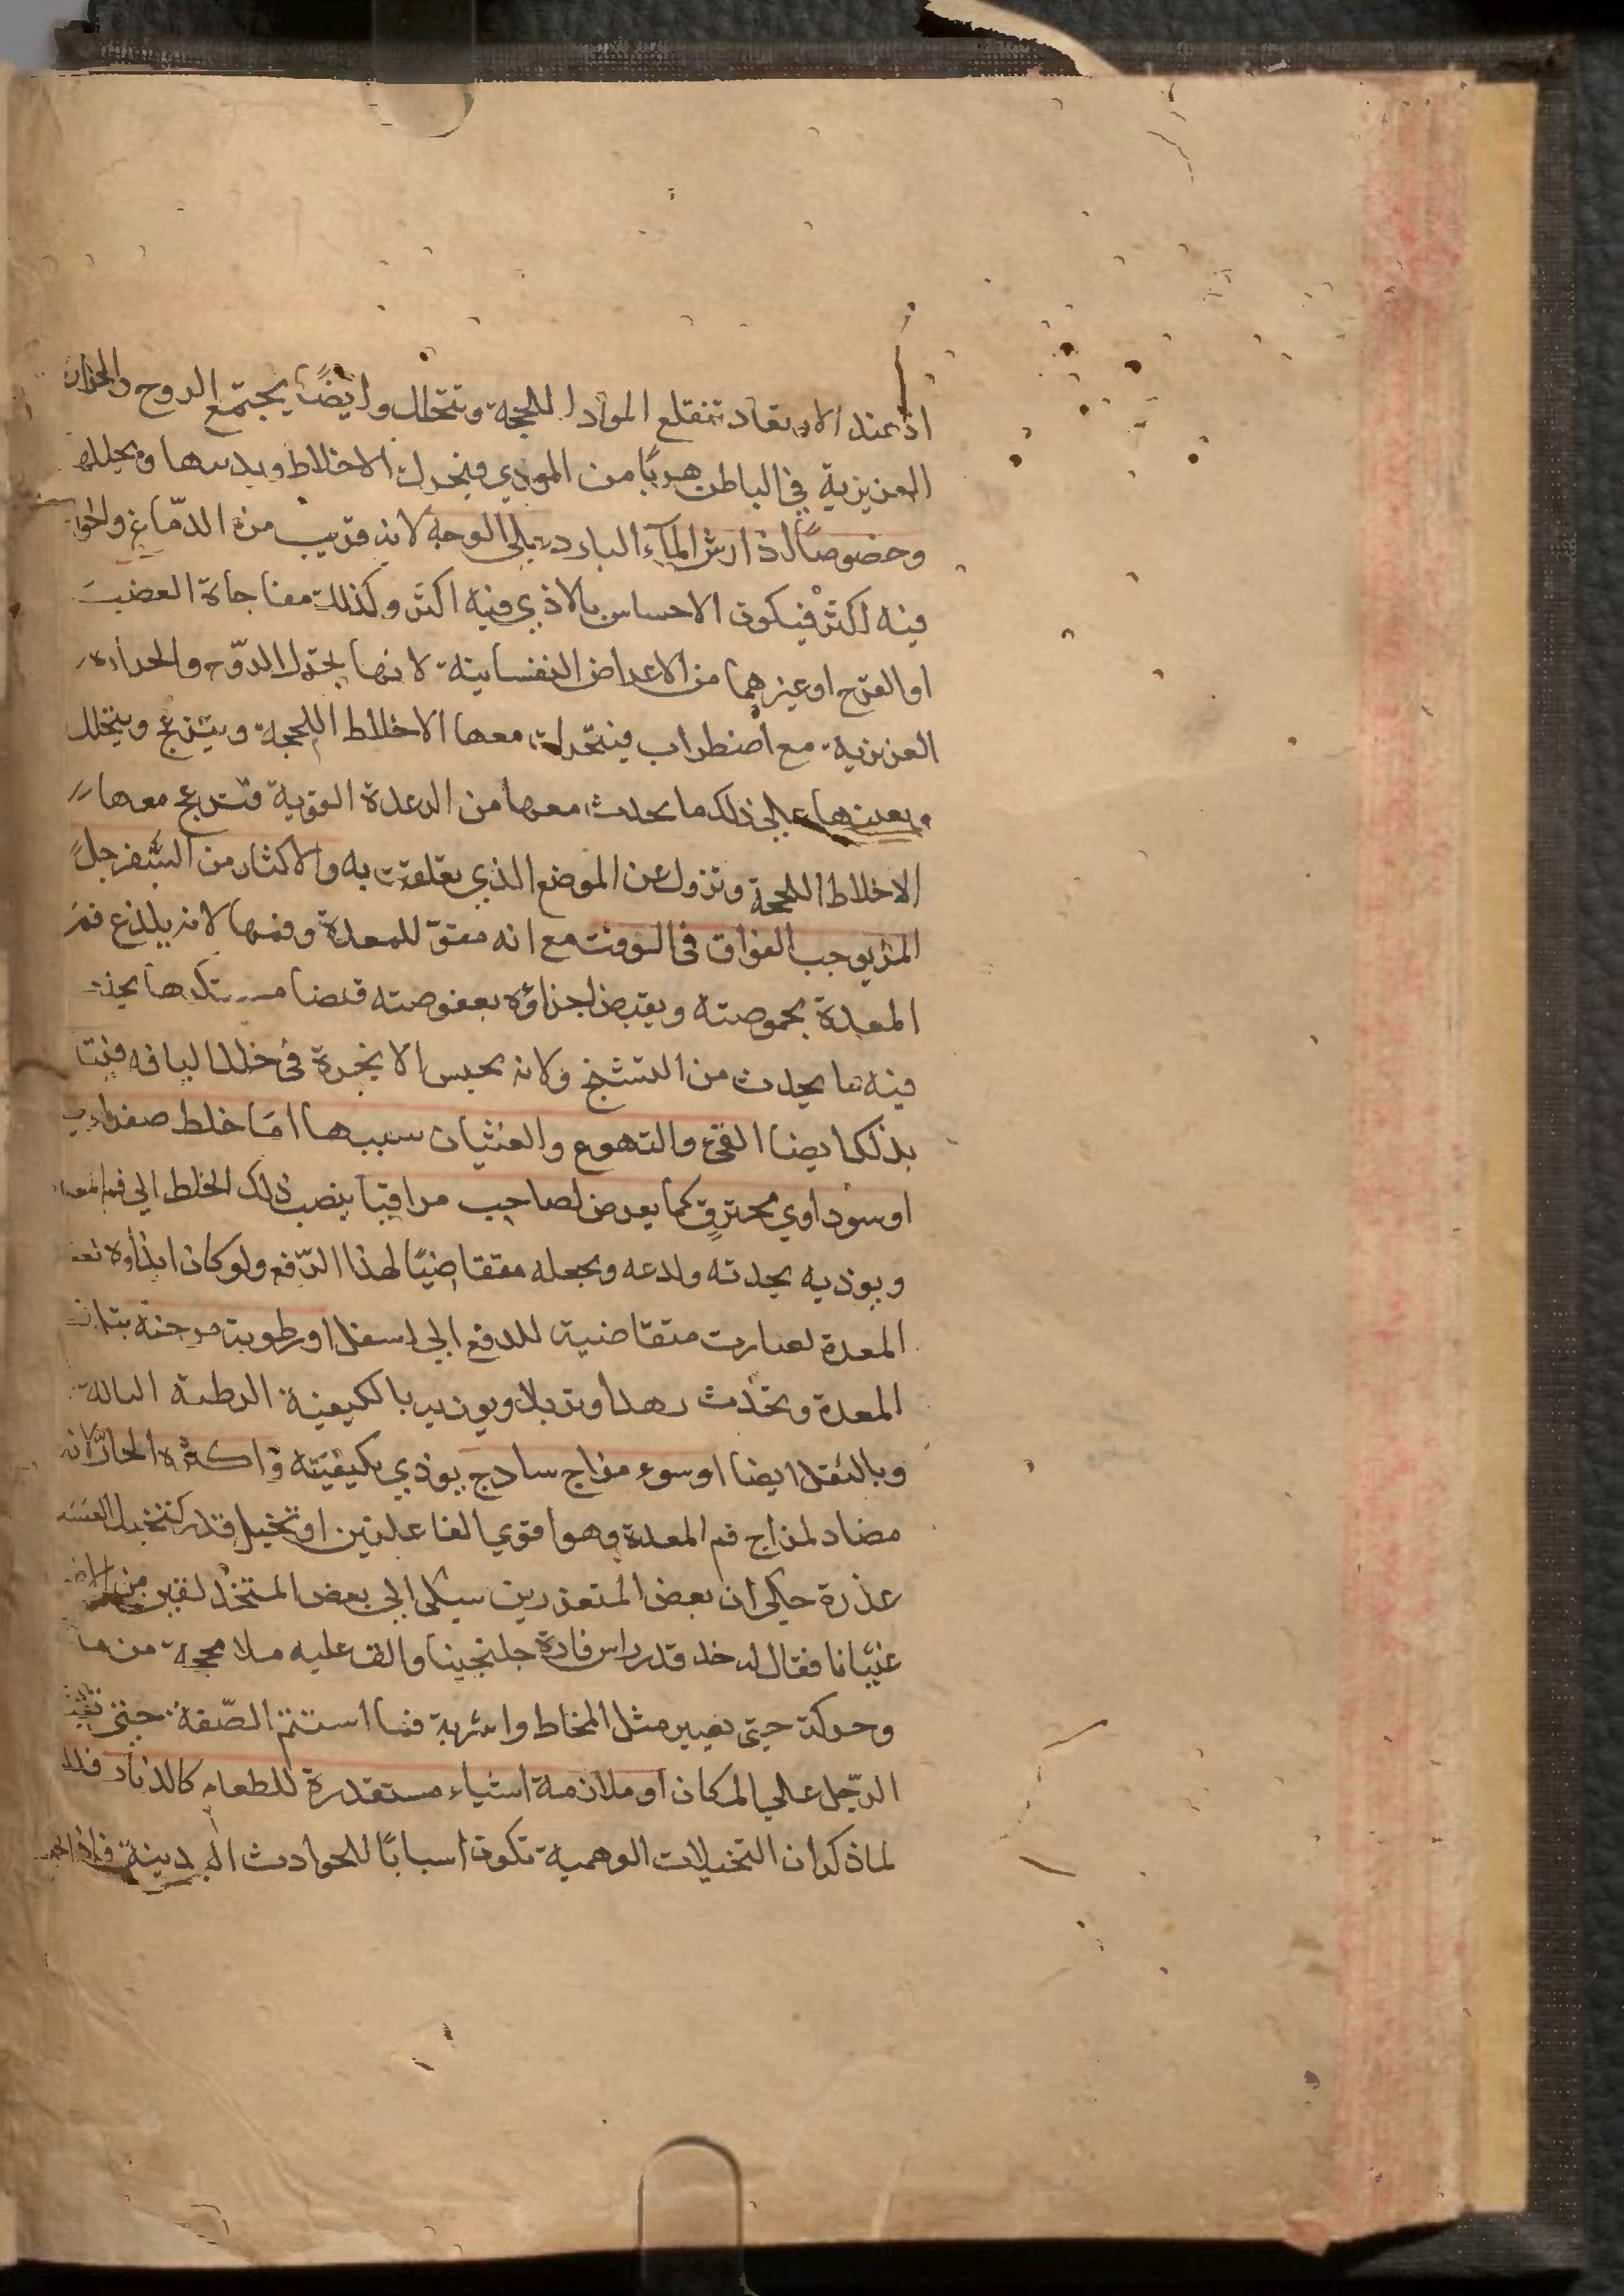 اذ عند الارتعاد تنقلع المواد اللحجة وتتحلل وايضًا يجتمع الروح والحرارة
الغريزية في الباطن هربًا من الموذي فيتحرك الاخلاط ويذيبها ويحللها
وخصوصًا اذا رش المآء البارد على الوجه لانه قريب من الدّماغ والحواس
فيه اكثر فيكون الاحساس بالاذي فيه اكثر وكذلك مفاجاة الغضب
او الفرح او غيرهما من الاعراض النفسانية لانها تحرك الرّوح والحرارة
الغريزية مع اضطراب فيتحرك معها الاخلاط اللحجة وينزعج ويتحلل
ويعينها على ذلك ما يحدث معها من الرعدة القوية فتنزعج معها
الاخلاط اللحجة وتزول عن الموضع الذي تعلقت به والاكثار من السّفرجل
المز يوجب الفواق في الوقت مع انه مقوّ للمعدة وفمها لانه يلذع فم
المعدة بحموصته ويقبض اجزاؤه بعفوصته قبضا يحدث
فيه ما يحدث من التشنج ولانه يحبس الابخرة في خلل اليافه
بذلك ايضا القئ والتهوع والغثيان سببها امّا خلط صفراوي
او سوداوي محترق كما يعرض لصاحب مراقيا ينصب ذلك الخلط الي فم المعدة
ويوذيه بحدته ولذعه ويجعله متقاضيًا لهذا الدّفع ولو كان ايذاؤه لقعر
المعدة لصارت متقاضية للدفع الي اسفل او رطوبة مرخية
المعدة وتحدث رهلا وتربلا ويوذيه بالكيفية الرطبة البالة
وبالثقل ايضا او سوء مزاج ساذج يوذي بكيفيته واكثره الحار لانه
مضاد لمزاج فم المعدة وهو اقوي الفاعلتين او تخيل قذر كتخيل العسل
عذرة حكي ان بعض المتعزرين شكي الي بعض
غثيانا فقال له خذ قدر راس فارة جلنجبينا والق عليه ملا محجمة من ما
وحركه حتي يصير مثل المخاط واشربه فما استتم الصّفة حتي تقيأ
الرّجل علي المكان او ملازمة اشياء مستقذرة للطعام كالذباب
لما ذكر ان التخيلات الوهمية تكون اسبابًا للحوادث البدنية فاذا